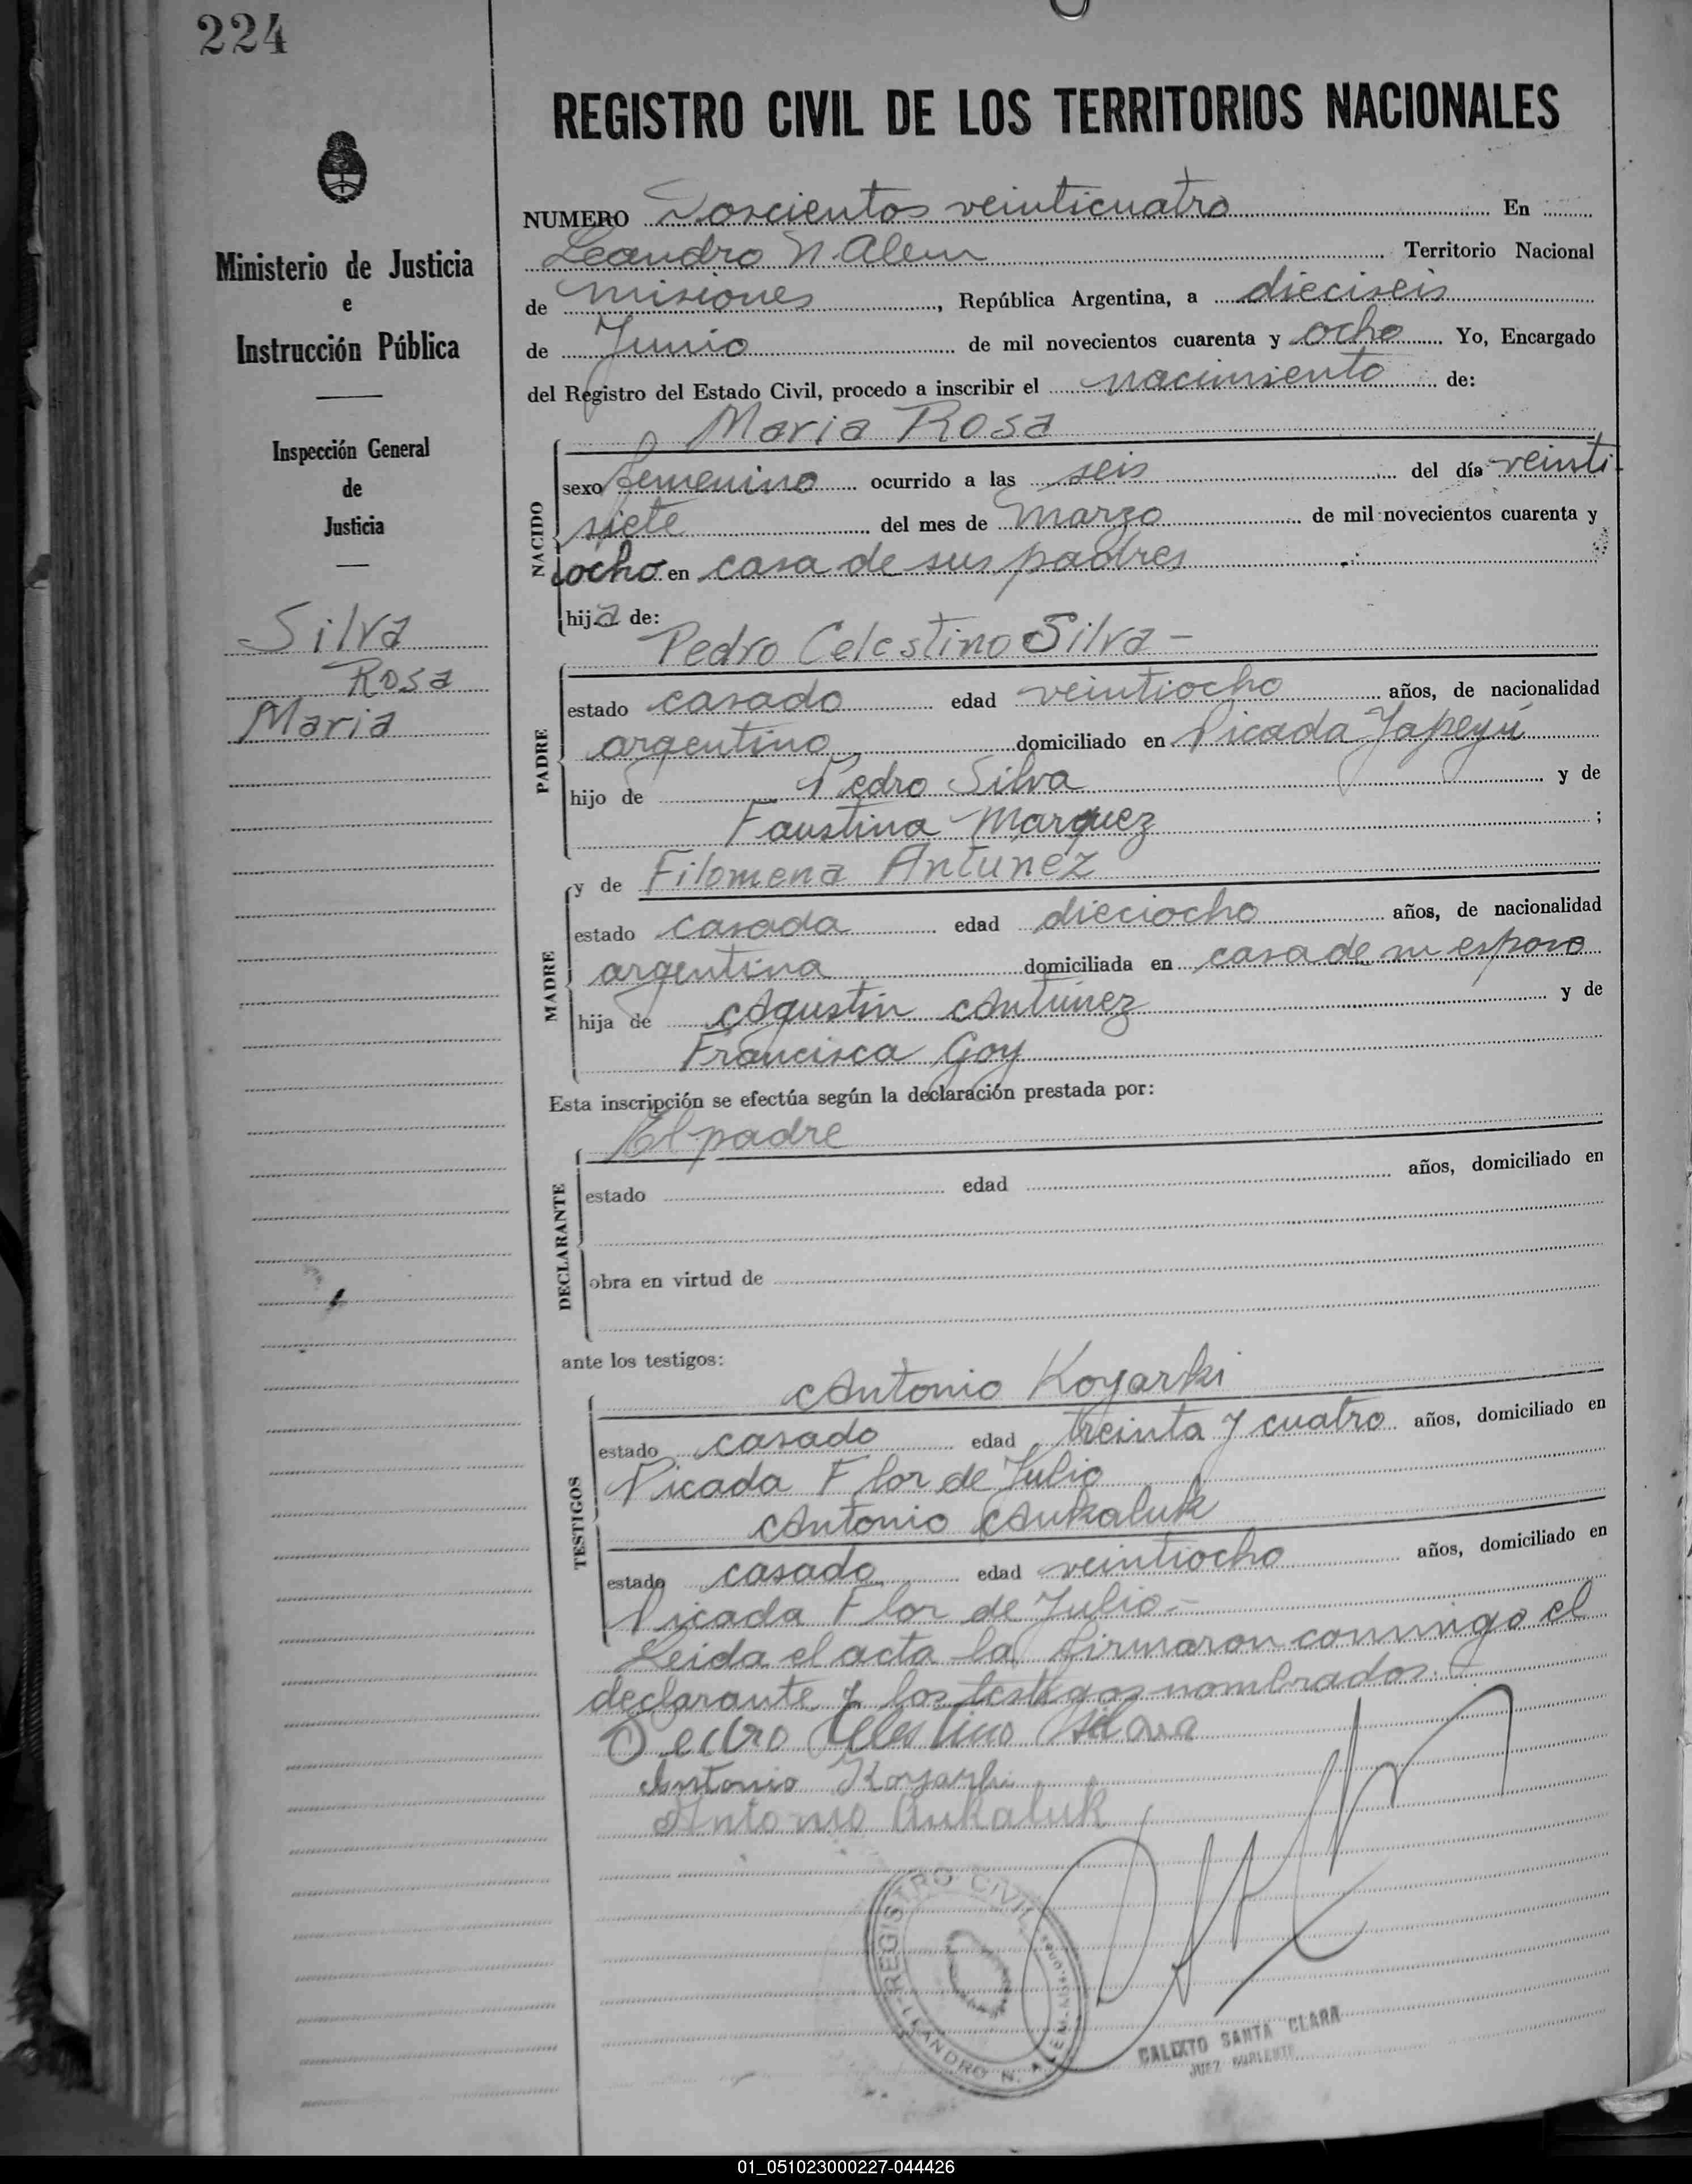 224
Ministerio de Justicia
e
Instrucción Pública
Inspección General
de
Justicia
Silva
Rosa
Maria
REGISTRO CIVIL DE LOS TERRITORIOS NACIONALES
NUMERO Doscientos veinticuatro En
Leandro N. Alem Territorio Nacional
de Misiones, República Argentina, a dieciseis
de Junio de mil novecientos cuarenta y ocho Yo, Encargado
del Registro del Estado Civil, procedo a inscribir el nacimiento de:
Maria Rosa
NACIDO
sexo femenino ocurrido a las seis del día veinti-
siete del mes de Marzo de mil novecientos cuarenta y
ocho en casa de sus padres
hija de:
Pedro Celestino Silva -
PADRE
estado casado edad veintiocho años, de nacionalidad
argentino domiciliado en Picada Yapeyú
hijo de Pedro Silva y de
Faustina Marquez ;
y de Filomena Antunez
MADRE
estado casada edad dieciocho años, de nacionalidad
argentina domiciliada en casa de su esposo
hija de Agustín Antúnez y de
Francisca Goy
Esta inscripción se efectúa según la declaración prestada por:
El padre
DECLARANTE
estado edad años, domiciliado en
obra en virtud de
ante los testigos:
Antonio Koyarki
TESTIGOS
estado casado edad treinta y cuatro años, domiciliado en
Picada Flor de Julio
Antonio Aukaluk
estado casado edad veintiocho años, domiciliado en
Picada Flor de Julio.-
Leida el acta la firmaron conmigo el
declarante y los testigos nombrados.
Pedro Celestino Silava
Antonio
Antonio Aukaluk
REGISTRO CIVIL
LEANDRO N. ALEM
CALIXTO SANTA CLARA
JUEZ SUPLENTE
01_051023000227-044426